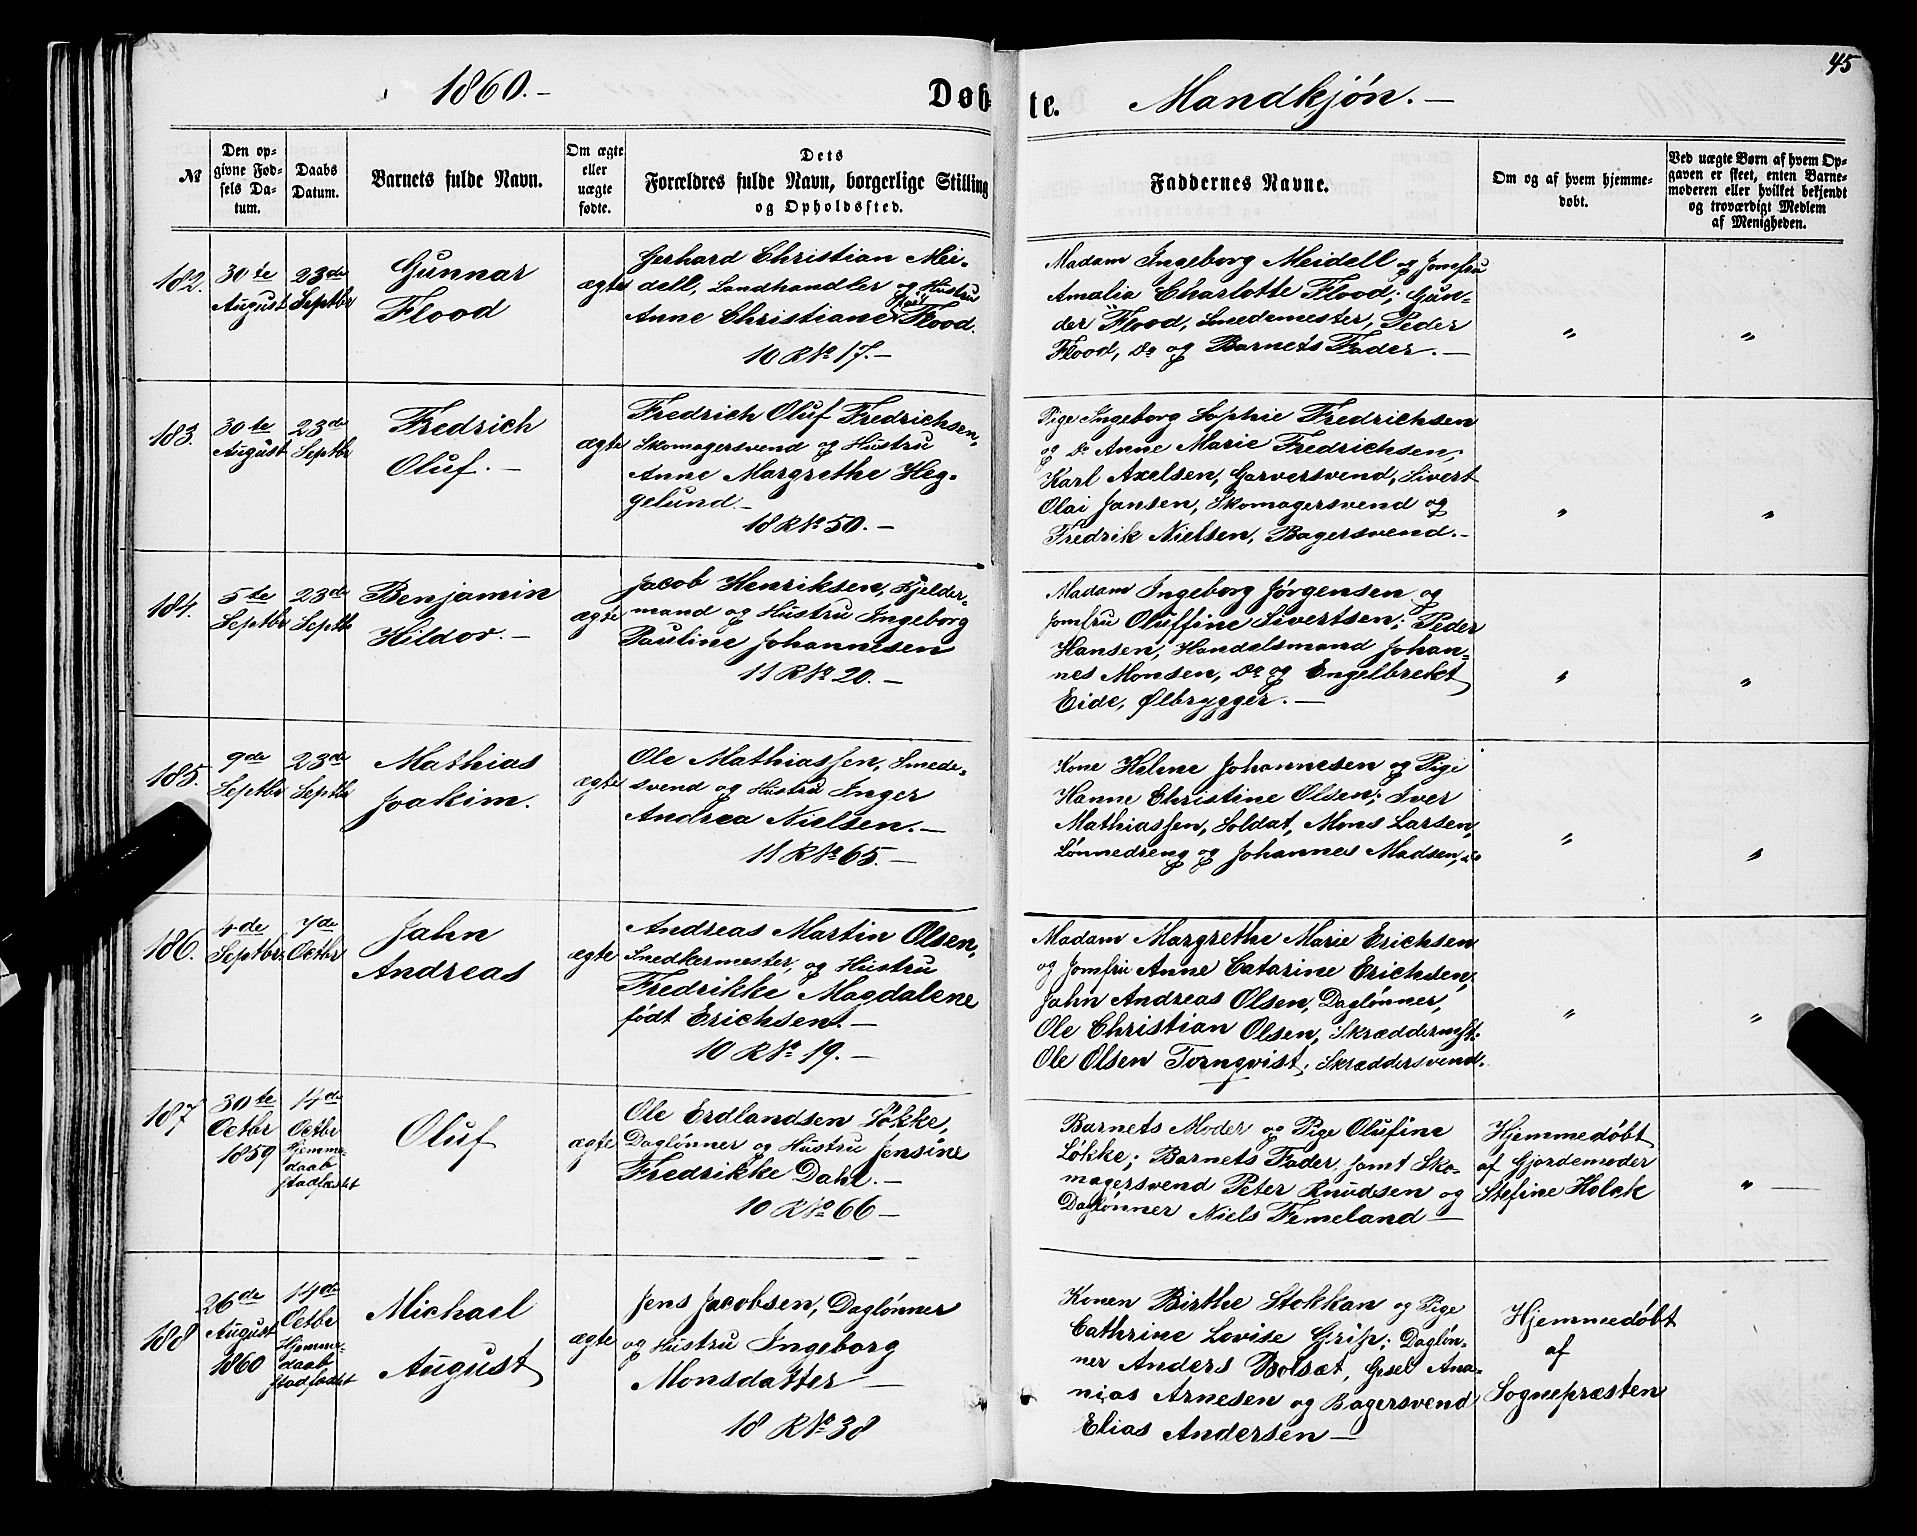 45
1860.–
Døb-
te.
Mandkjøn.–
№
Den op-
givne Fød-
sels Da-
tum.
Daabs
Datum.
Barnets fulde Navn.
Om ægte
eller
uægte
fødte.
Dets
Forældres fulde Navn, borgerlige Stilling
og Opholdssted.
Faddernes Navne.
Om og af hvem hjemme-
døbt.
Ved uægte Børn af hvem Op-
gaven er skeet, enten Barne-
moderen eller hvilket bekjendt
og troværdigt Medlem
af Menigheden.
182.
30te
August
23de
Septbr
Gunnar
Flood
ægte
Gerhard Christian Mei-
dell, Landhandler og Hustru
Anne Christiane Flood.
10 R No 17.–
Madam Ingeborg Meidell og Jomfru
Amalia Charlotte Flood; Gun-
der Flood, Smedemester, Peder
Flood, Do og Barnets Fader.–
"
"
183.
30te
August
23de
Septbr
Fredrich
Oluf.–
ægte
Fredrich Oluf Fredrichsen,
Skomagersvend og Hustru
Anne Margrethe Heg-
gelund.–
18 R No 50.–
Pige Ingeborg Sophie Fredrichsen
og Do Anne Marie Fredrichsen;
Karl Axelsen, Garversvend, Sivert
Olai Jansen, Skomagersvend og
Fredrik Nielsen, Bagersvend.–
"
"
184.
5te
Septbr
23de
Septb
Benjamin
Hildor.–
ægte
Jacob Henriksen, Kjelder-
mand og Hustru Ingeborg
Pauline Johannesen
11 R No 20.–
Madam Ingeborg Jørgensen og
Jomfru Oluffine Sivertsen; Peder
Hansen, Handelsmand Johan-
nes Monsen, Do og Engelbrekt
Eide, Ølbrygger.–
"
"
185.
9de
Septbr
23de
Septbr
Mathias
Joakim.
ægte
Ole Mathiassen, Smede-
svend og Hustru Inger
Andrea Nielsen.–
11 R No 65.–
Kone Helene Johannesen og Pige
Hanne Christine Olsen; Iver
Mathiassen, Soldat, Mons Larsen,
Lønnedreng og Johannes Madsen, do
"
"
186.
4de
Septbr
7de
Octbr
Jahn
Andreas
ægte
Andreas Martin Olsen,
Snedkermester, og Hustru
Fredrikke Magdalene
født Erichsen.–
10 R No 19.–
Madam Margrethe Marie Erichsen
og Jomfru Anne Catarine Erichsen,
Jahn Andreas Olsen, Daglønner,
Ole Christian Olsen, Skræddermest.
Ole Olsen Tornqvist, Skræddersvend.
"
"
187
30te
Octbr
1859
14de
Octbr
Hjemme-
daab
stadfæstet
Oluf
ægte
Ole Erdlandsen Løkke,
Daglønner og Hustru Jensine
Fredrikke Dahl.–
10 R No 66–
Barnets Moder og Pige Olufine
Løkke; Barnets Fader samt Sko-
magersvend Peter Knudsen og
Daglønner Niels Femeland–
Hjemmedøbt
af Gjordemoder
Stefine Holck
"–
188
26de
August
1860
14de
Octbr
Hjemme-
daab
stadfæstet
Michael
August
ægte
Jens Jacobsen, Daglønner
og Hustru Ingeborg
Monsdatter–
18 R No 38
Konen Birthe Stokkan og Pige
Cathrine Lovise Grip; Dagløn-
ner Anders Bolsæt, Gesel Ana-
nias Arnesen og Bagersvend
Elias Andersen–
Hjemmedøbt
af
Sognepræsten